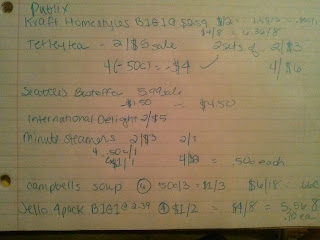 Publix
Kraft Homestyles B1G1 @ $2.59 $1/2 =
$4/8 = 6.36/8
Tetley tea - 2/$5 sale 2 sets of 2/$3
4(-50¢) = -$4 4/$6
Seattle's Best coffee 5.99 sale
-$1.50 = $4.50
International Delight 2/$5
Minute steamers 2/$3 2/1
4 .50¢/1
4 $1/1 4/$2 = .50¢ each
Campbells soup ④ 50¢/3 = $1/3 $6/18 = .66¢
Jello 4pack B1G1 @ 2.39 ④ $1/2 = $4/8 = 5.56/8
.70 ea